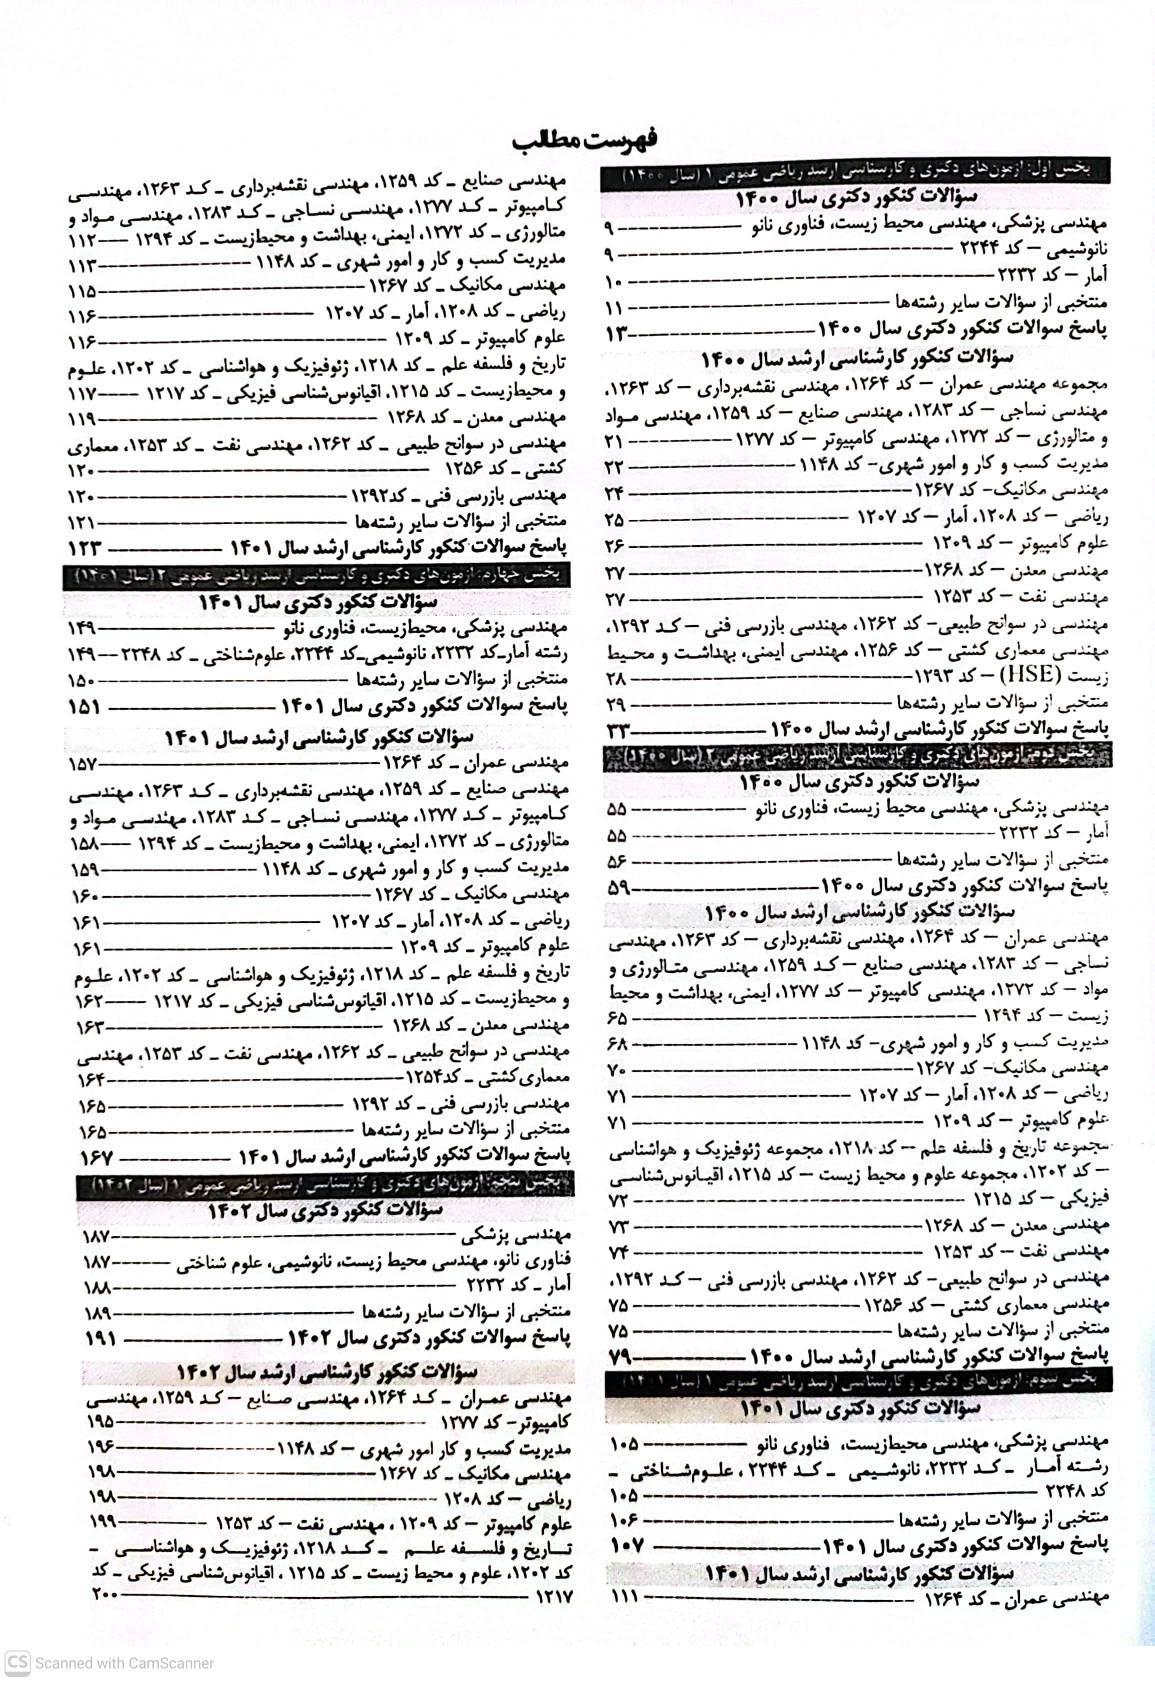 فهرست مطالب
بخش اول: آزمون‌های دکتری و کارشناسی ارشد ریاضی عمومی ۱ (سال ۱۴۰۰)
سؤالات کنکور دکتری سال ۱۴۰۰
مهندسی پزشکی، مهندسی محیط زیست، فناوری نانو ---- ۹
نانوشیمی – کد ۲۲۴۴ ---- ۹
آمار – کد ۲۲۳۲ ---- ۱۰
منتخبی از سؤالات سایر رشته‌ها ---- ۱۱
پاسخ سوالات کنکور دکتری سال ۱۴۰۰ ---- ۱۳
سؤالات کنکور کارشناسی ارشد سال ۱۴۰۰
مجموعه مهندسی عمران – کد ۱۲۶۴، مهندسی نقشه‌برداری – کد ۱۲۶۳،
مهندسی نساجی – کد ۱۲۸۳، مهندسی صنایع – کد ۱۲۵۹، مهندسی مواد
و متالورژی – کد ۱۲۷۲، مهندسی کامپیوتر – کد ۱۲۷۷ ---- ۲۱
مدیریت کسب و کار و امور شهری- کد ۱۱۴۸ ---- ۲۲
مهندسی مکانیک- کد ۱۲۶۷ ---- ۲۴
ریاضی – کد ۱۲۰۸، آمار – کد ۱۲۰۷ ---- ۲۵
علوم کامپیوتر – کد ۱۲۰۹ ---- ۲۶
مهندسی معدن – کد ۱۲۶۸ ---- ۲۷
مهندسی نفت – کد ۱۲۵۳ ---- ۲۷
مهندسی در سوانح طبیعی- کد ۱۲۶۲، مهندسی بازرسی فنی – کد ۱۲۹۲،
مهندسی معماری کشتی – کد ۱۲۵۶، مهندسی ایمنی، بهداشت و محیط
زیست (HSE) – کد ۱۲۹۳ ---- ۲۸
منتخبی از سؤالات سایر رشته‌ها ---- ۲۹
پاسخ سوالات کنکور کارشناسی ارشد سال ۱۴۰۰ ---- ۳۳
بخش دوم: آزمون‌های دکتری و کارشناسی ارشد ریاضی عمومی ۲ (سال ۱۴۰۰)
سؤالات کنکور دکتری سال ۱۴۰۰
مهندسی پزشکی، مهندسی محیط زیست، فناوری نانو ---- ۵۵
آمار – کد ۲۲۳۲ ---- ۵۵
منتخبی از سؤالات سایر رشته‌ها ---- ۵۶
پاسخ سوالات کنکور دکتری سال ۱۴۰۰ ---- ۵۹
سؤالات کنکور کارشناسی ارشد سال ۱۴۰۰
مهندسی عمران – کد ۱۲۶۴، مهندسی نقشه‌برداری – کد ۱۲۶۳، مهندسی
نساجی – کد ۱۲۸۳، مهندسی صنایع – کد ۱۲۵۹، مهندسی متالورژی و
مواد – کد ۱۲۷۲، مهندسی کامپیوتر – کد ۱۲۷۷، ایمنی، بهداشت و محیط
زیست – کد ۱۲۹۴ ---- ۶۵
مدیریت کسب و کار و امور شهری- کد ۱۱۴۸ ---- ۶۸
مهندسی مکانیک- کد ۱۲۶۷ ---- ۷۰
ریاضی – کد ۱۲۰۸، آمار – کد ۱۲۰۷ ---- ۷۱
علوم کامپیوتر – کد ۱۲۰۹ ---- ۷۱
مجموعه تاریخ و فلسفه علم – کد ۱۲۱۸، مجموعه ژئوفیزیک و هواشناسی
– کد ۱۲۰۲، مجموعه علوم و محیط زیست – کد ۱۲۱۵، اقیانوس‌شناسی
فیزیکی – کد ۱۲۱۵ ---- ۷۲
مهندسی معدن – کد ۱۲۶۸ ---- ۷۳
مهندسی نفت – کد ۱۲۵۳ ---- ۷۴
مهندسی در سوانح طبیعی- کد ۱۲۶۲، مهندسی بازرسی فنی – کد ۱۲۹۲،
مهندسی معماری کشتی – کد ۱۲۵۶ ---- ۷۵
منتخبی از سؤالات سایر رشته‌ها ---- ۷۵
پاسخ سوالات کنکور کارشناسی ارشد سال ۱۴۰۰ ---- ۷۹
بخش سوم: آزمون‌های دکتری و کارشناسی ارشد ریاضی عمومی ۱ (سال ۱۴۰۱)
سؤالات کنکور دکتری سال ۱۴۰۱
مهندسی پزشکی، مهندسی محیط‌زیست، فناوری نانو ---- ۱۰۵
رشته آمار _ کد ۲۲۳۲، نانوشیمی _ کد ۲۲۴۴ ، علوم‌شناختی _
کد ۲۲۴۸ ---- ۱۰۵
منتخبی از سؤالات سایر رشته‌ها ---- ۱۰۶
پاسخ سوالات کنکور دکتری سال ۱۴۰۱ ---- ۱۰۷
سؤالات کنکور کارشناسی ارشد سال ۱۴۰۱
مهندسی عمران _ کد ۱۲۶۴ ---- ۱۱۱
مهندسی صنایع _ کد ۱۲۵۹، مهندسی نقشه‌برداری _ کد ۱۲۶۳، مهندسی
کامپیوتر _ کد ۱۲۷۷، مهندسی نساجی _ کد ۱۲۸۳، مهندسی مواد و
متالورژی _ کد ۱۲۷۲، ایمنی، بهداشت و محیط‌زیست _ کد ۱۲۹۴ ---- ۱۱۲
مدیریت کسب و کار و امور شهری _ کد ۱۱۴۸ ---- ۱۱۳
مهندسی مکانیک _ کد ۱۲۶۷ ---- ۱۱۵
ریاضی _ کد ۱۲۰۸، آمار _ کد ۱۲۰۷ ---- ۱۱۶
علوم کامپیوتر _ کد ۱۲۰۹ ---- ۱۱۶
تاریخ و فلسفه علم _ کد ۱۲۱۸، ژئوفیزیک و هواشناسی _ کد ۱۲۰۲، علوم
و محیط‌زیست _ کد ۱۲۱۵، اقیانوس‌شناسی فیزیکی _ کد ۱۲۱۷ ---- ۱۱۷
مهندسی معدن _ کد ۱۲۶۸ ---- ۱۱۹
مهندسی در سوانح طبیعی _ کد ۱۲۶۲، مهندسی نفت _ کد ۱۲۵۳، معماری
کشتی _ کد ۱۲۵۶ ---- ۱۲۰
مهندسی بازرسی فنی _ کد۱۲۹۲ ---- ۱۲۰
منتخبی از سؤالات سایر رشته‌ها ---- ۱۲۱
پاسخ سوالات کنکور کارشناسی ارشد سال ۱۴۰۱ ---- ۱۲۳
بخش چهارم: آزمون‌های دکتری و کارشناسی ارشد ریاضی عمومی ۲ (سال ۱۴۰۱)
سؤالات کنکور دکتری سال ۱۴۰۱
مهندسی پزشکی، محیط‌زیست، فناوری نانو ---- ۱۴۹
رشته آمار_کد ۲۲۳۲، نانوشیمی_کد ۲۲۴۴، علوم‌شناختی _ کد ۲۲۴۸ ---- ۱۴۹
منتخبی از سؤالات سایر رشته‌ها ---- ۱۵۰
پاسخ سوالات کنکور دکتری سال ۱۴۰۱ ---- ۱۵۱
سؤالات کنکور کارشناسی ارشد سال ۱۴۰۱
مهندسی عمران _ کد ۱۲۶۴ ---- ۱۵۷
مهندسی صنایع _ کد ۱۲۵۹، مهندسی نقشه‌برداری _ کد ۱۲۶۳، مهندسی
کامپیوتر _ کد ۱۲۷۷، مهندسی نساجی _ کد ۱۲۸۳، مهندسی مواد و
متالورژی _ کد ۱۲۷۲، ایمنی، بهداشت و محیط‌زیست _ کد ۱۲۹۴ ---- ۱۵۸
مدیریت کسب و کار و امور شهری _ کد ۱۱۴۸ ---- ۱۵۹
مهندسی مکانیک _ کد ۱۲۶۷ ---- ۱۶۰
ریاضی _ کد ۱۲۰۸، آمار _ کد ۱۲۰۷ ---- ۱۶۱
علوم کامپیوتر _ کد ۱۲۰۹ ---- ۱۶۱
تاریخ و فلسفه علم _ کد ۱۲۱۸، ژئوفیزیک و هواشناسی _ کد ۱۲۰۲، علوم
و محیط‌زیست _ کد ۱۲۱۵، اقیانوس‌شناسی فیزیکی _ کد ۱۲۱۷ ---- ۱۶۲
مهندسی معدن _ کد ۱۲۶۸ ---- ۱۶۳
مهندسی در سوانح طبیعی _ کد ۱۲۶۲، مهندسی نفت _ کد ۱۲۵۳، مهندسی
معماری‌کشتی _ کد۱۲۵۴ ---- ۱۶۴
مهندسی بازرسی فنی _ کد ۱۲۹۲ ---- ۱۶۵
منتخبی از سؤالات سایر رشته‌ها ---- ۱۶۵
پاسخ سوالات کنکور کارشناسی ارشد سال ۱۴۰۱ ---- ۱۶۷
بخش پنجم: آزمون‌های دکتری و کارشناسی ارشد ریاضی عمومی ۱ (سال ۱۴۰۲)
سؤالات کنکور دکتری سال ۱۴۰۲
مهندسی پزشکی ---- ۱۸۷
فناوری نانو، مهندسی محیط زیست، نانوشیمی، علوم شناختی ---- ۱۸۷
آمار _ کد ۲۲۳۲ ---- ۱۸۸
منتخبی از سؤالات سایر رشته‌ها ---- ۱۸۹
پاسخ سوالات کنکور دکتری سال ۱۴۰۲ ---- ۱۹۱
سؤالات کنکور کارشناسی ارشد سال ۱۴۰۲
مهندسی عمران _ کد ۱۲۶۴، مهندسی صنایع – کد ۱۲۵۹، مهندسی
کامپیوتر- کد ۱۲۷۷ ---- ۱۹۵
مدیریت کسب و کار امور شهری – کد ۱۱۴۸ ---- ۱۹۶
مهندسی مکانیک _ کد ۱۲۶۷ ---- ۱۹۸
ریاضی – کد ۱۲۰۸ ---- ۱۹۸
علوم کامپیوتر – کد ۱۲۰۹ ، مهندسی نفت – کد ۱۲۵۳ ---- ۱۹۹
تاریخ و فلسفه علم _ کد ۱۲۱۸، ژئوفیزیک و هواشناسی _
کد ۱۲۰۲، علوم و محیط زیست _ کد ۱۲۱۵ ، اقیانوس‌شناسی فیزیکی _ کد
۱۲۱۷ ---- ۲۰۰
CS Scanned with CamScanner